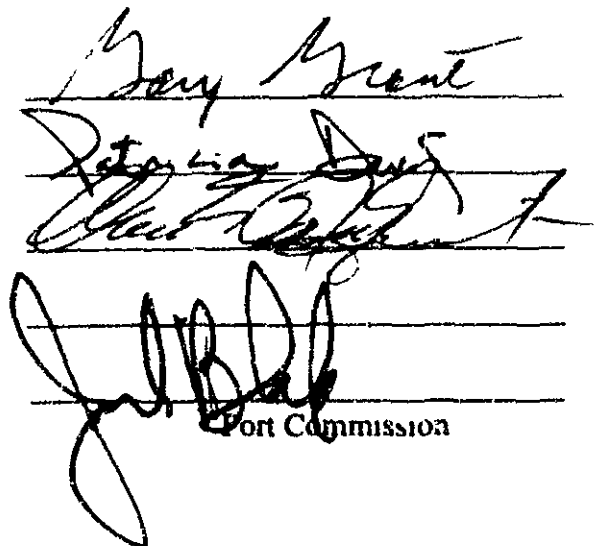 Gary Grant
Patricia Davis
Jack Block
Port Commission